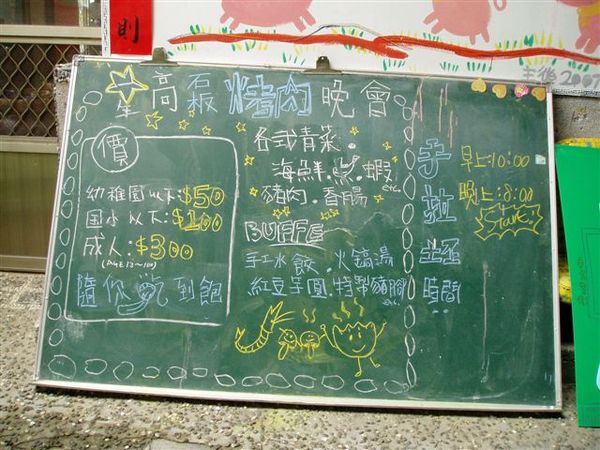 則
生後2007
星高石板烤肉晚會
價
幼稚園以下:$50
国小以下:$100
成人:$300
(AGE 12~100)
隨你吃到飽
各式青菜.
海鮮.魚.蝦
豬肉.香腸 etc.
BUFFE
手工水餃.火鍋湯
紅豆芋圓.特製豬腳 etc.
手拉坯時間
早上:10:00
晚上:8:00
Start